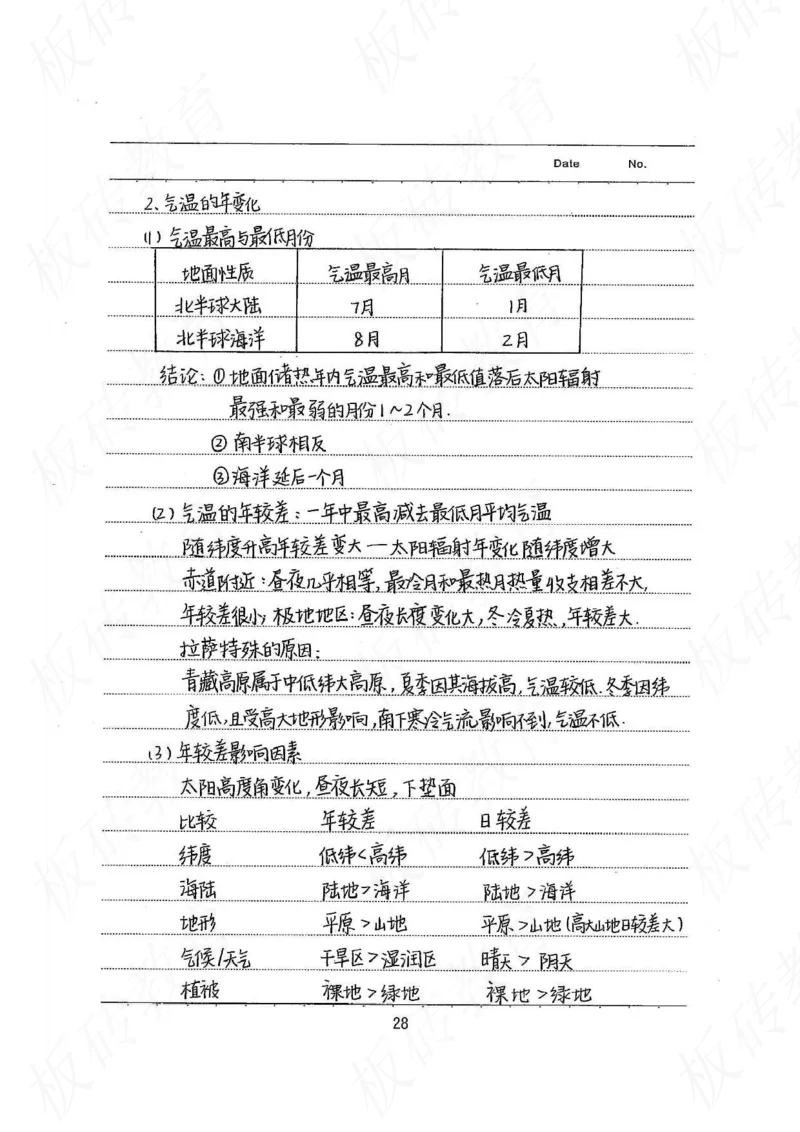 Date No.
2、气温的年变化
(1) 气温最高与最低月份
地面性质 气温最高月 气温最低月
北半球大陆 7月 1月
北半球海洋 8月 2月
结论:①地面储热年内气温最高和最低值落后太阳辐射
最强和最弱的月份1~2个月.
②南半球相反
③海洋延后一个月
(2) 气温的年较差:一年中最高减去最低月平均气温
随纬度升高年较差变大 — 太阳辐射年变化随纬度增大
赤道附近:昼夜几乎相等,最冷月和最热月热量收支相差不大,
年较差很小;极地地区:昼夜长度变化大,冬冷夏热,年较差大.
拉萨特殊的原因:
青藏高原属于中低纬大高原,夏季因其海拔高,气温较低.冬季因纬
度低,且受高大地形影响,南下寒冷气流影响不到,气温不低.
(3) 年较差影响因素
太阳高度角变化,昼夜长短,下垫面
比较 年较差 日较差
纬度 低纬<高纬 低纬>高纬
海陆 陆地>海洋 陆地>海洋
地形 平原>山地 平原>山地(高大山地日较差大)
气候/天气 干旱区>湿润区 晴天>阴天
植被 裸地>绿地 裸地>绿地
28
板砖教育